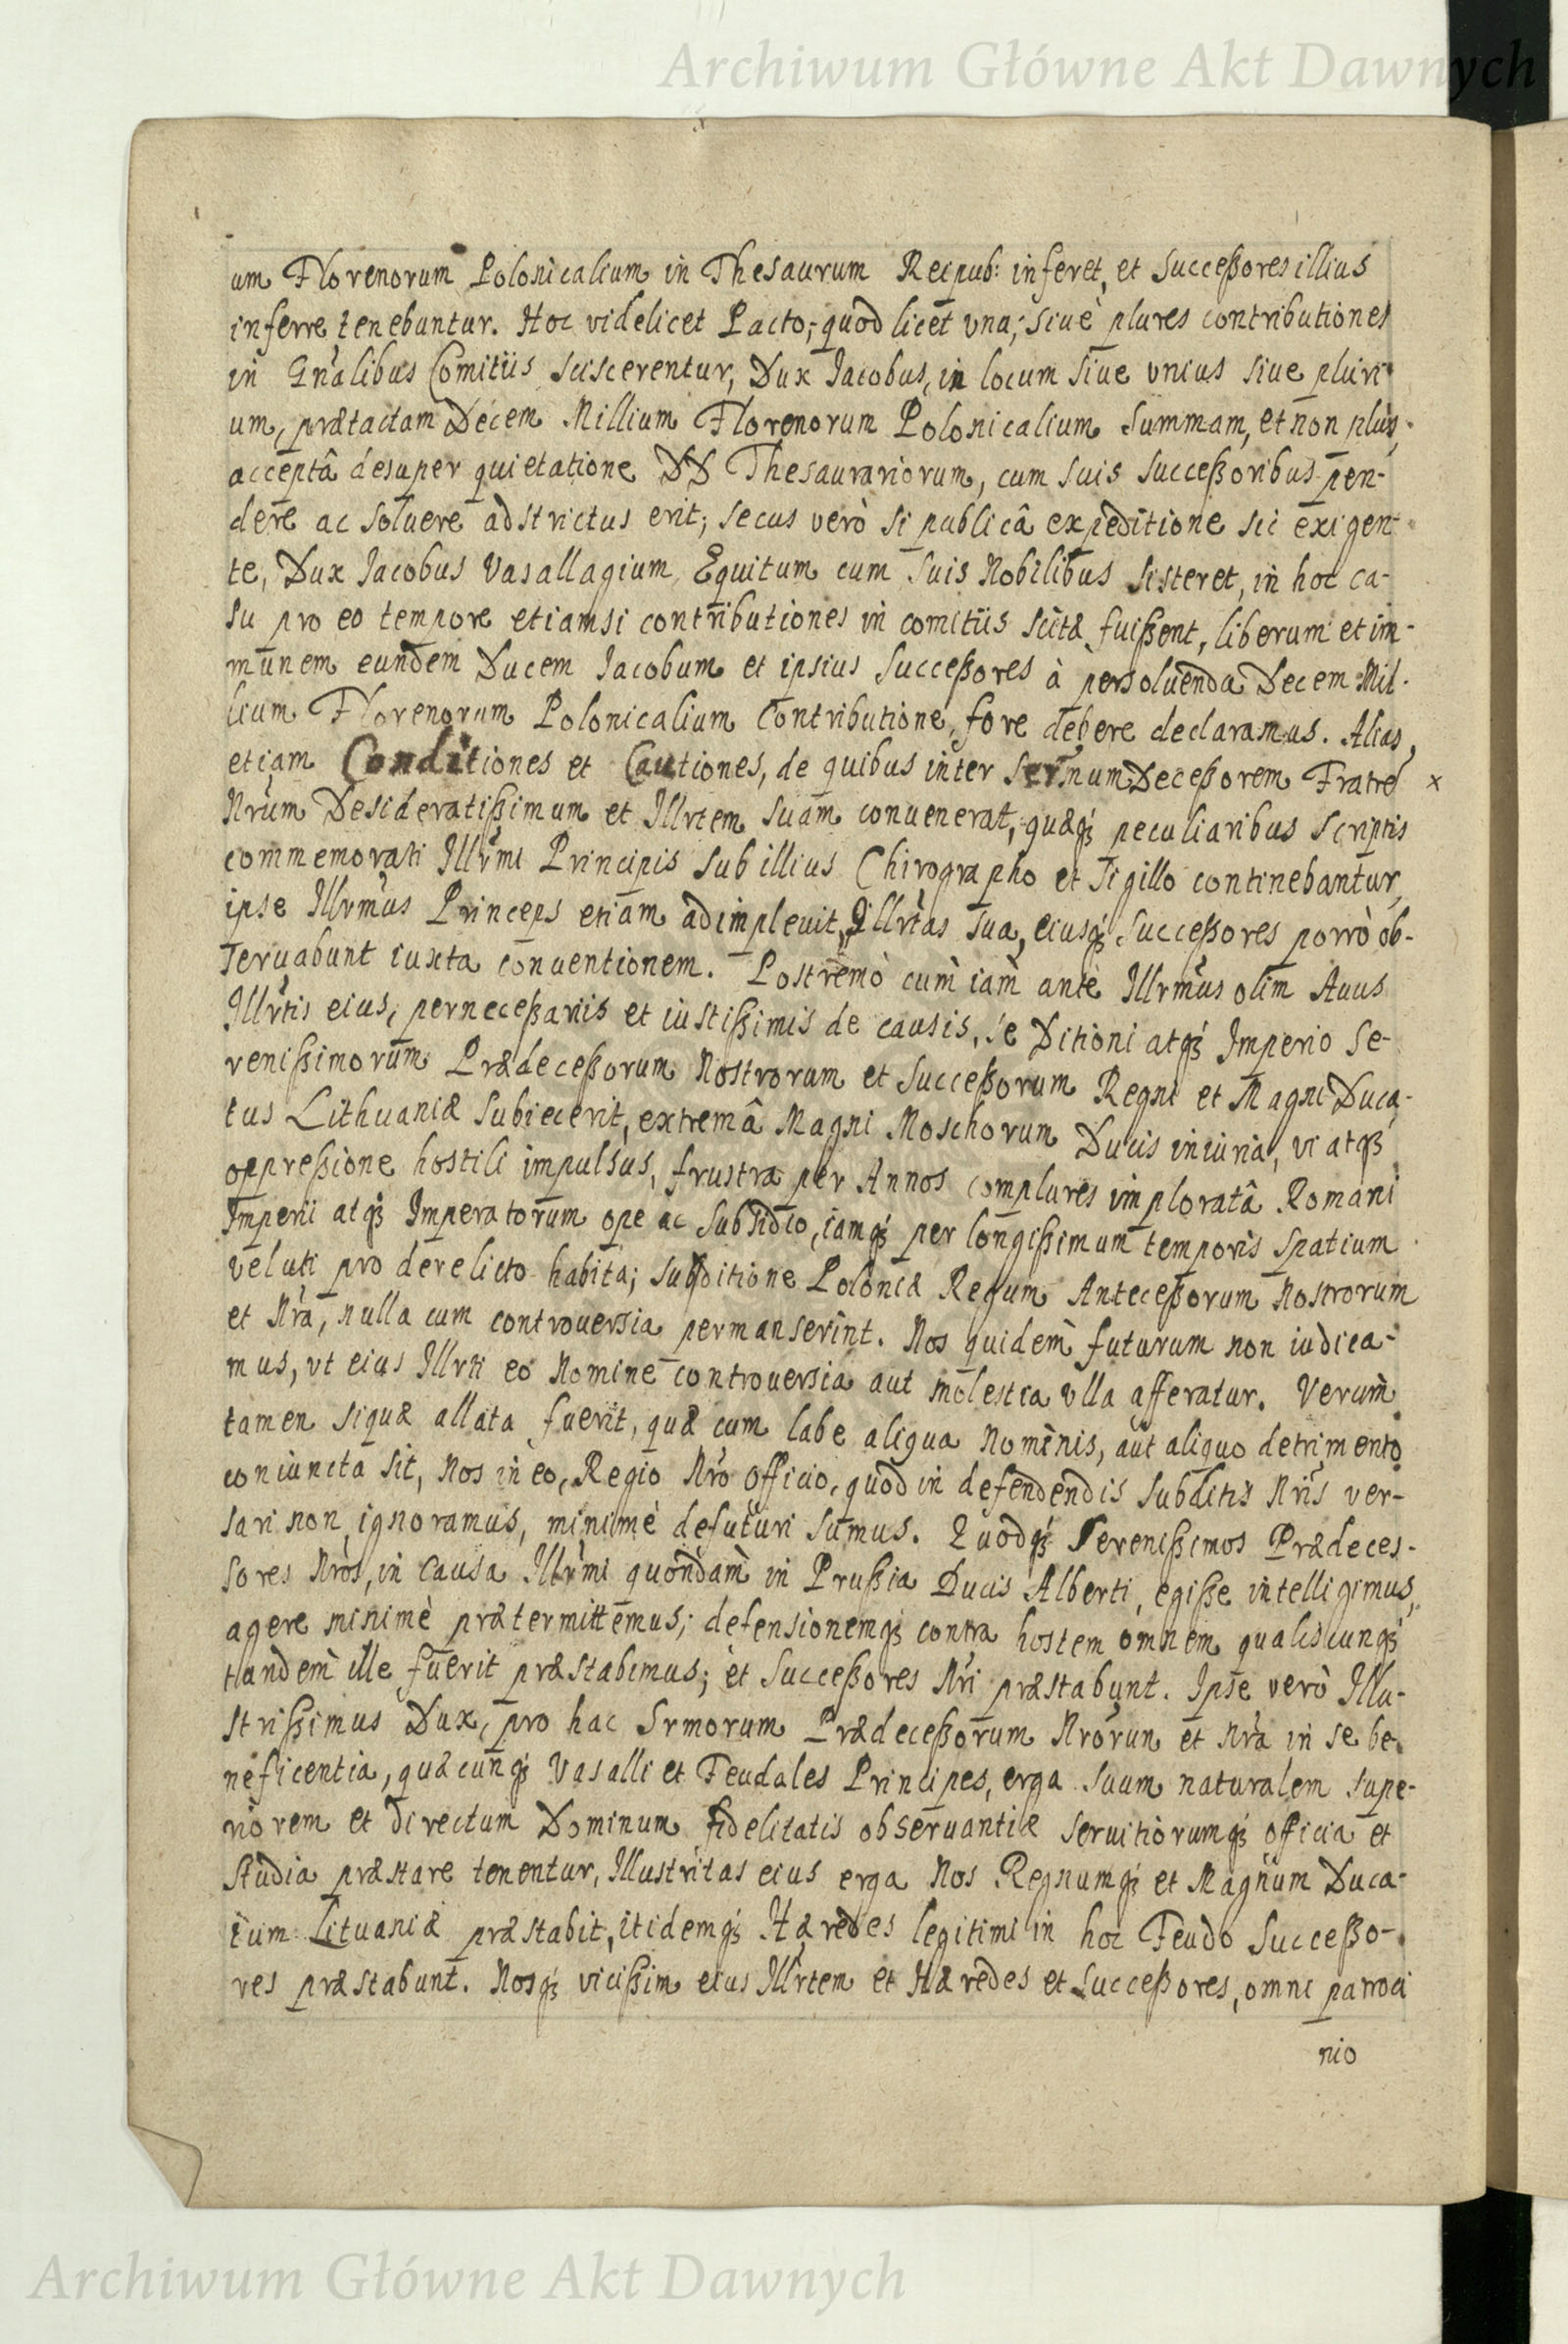 Archiwum Główne Akt Dawnych
um Florenorum Polonicalium in Thesaurum Reipub: inferet, et Successores illius
inferre tenebuntur. Hoc videlicet Pacto, quod licet vna, siue plures contributiones
in Gnalibus Comitiis sciscerentur, Dux Jacobus, in locum siue vnius siue pluri
um, prætactam Decem Millium Florenorum Polonicalium Summam, et non plus,
acceptâ desuper quietatione DD Thesaurariorum, cum suis Successoribus pen-
dere ac soluere adstrictus erit; secus verò si publicâ expeditione sic exigen-
te, Dux Jacobus Vasallagium Equitum cum suis Nobilibus sisteret, in hoc ca-
su pro eo tempore etiamsi contributiones in comitiis scitæ fuissent, liberum et im-
munem eundem Ducem Jacobum et ipsius Successores à persoluenda Decem Mil-
lium Florenorum Polonicalium Contributione, fore debere declaramus. Alias,
etiam Conditiones et Cautiones, de quibus inter Sernum Decessorem Fratrē x
Nrum Desideratissimum et Illrtem Suam conuenerat, quæq́ peculiaribus Scriptis
commemorati Illrmi Principis sub illius Chirographo et Sigillo continebantur,
ipse Illrmus Princeps etiam adimpleuit, Illrtas sua, eiusq́ Successores porrò ob-
seruabunt iuxta conuentionem. Postremò cum iam antè Illrmus olim Auus
Illrtis eius, pernecessariis et iustissimis de causis, se Ditioni atq́ Imperio Se-
renissimorum Prædecessorum Nostrorum et Successorum Regni et Magni Duca-
tus Lithuaniæ subiecerit, extremâ Magni Moschorum Ducis iniuria, vi atq́
oppressione hostili impulsus, frustra per Annos complures imploratâ Romani
Imperii atq́ Imperatorum ope ac subsidio, iamq́ per longissimum temporis spatium
veluti pro derelicto habita; sub ditione Poloniæ Regum Antecessorum Nostrorum
et Nrâ, nulla cum controuersia permanserint. Nos quidem futurum non iudica-
mus, vt eius Illrti eo Nomine controuersia aut molestia vlla afferatur. Verum
tamen siquæ allata fuerit, quæ cum labe aliqua Nominis, aut aliquo detrimento
coniuncta sit, Nos in eo, Regio Nro Officio, quod in defendendis subditis Nris ver-
sari non ignoramus, minimè defuturi sumus. Quodq́ Serenissimos Prædeces-
sores Nros, in Causa Illrmi quondam in Prussia Ducis Alberti, egisse intelligimus,
agere minimè prætermittemus; defensionemq́ contra hostem omnem qualiscunq́
tandem ille fuerit præstabimus; et Successores Nri præstabunt. Ipse verò Illu-
strissimus Dux, pro hac Srmorum Prædecessorum Nrorum et Nra in se be-
neficentia, quæcunq́ Vasalli et Feudales Principes, erga suum naturalem supe-
riorem et directum Dominum fidelitatis obseruantiæ seruitiorumq́ officia et
studia præstare tenentur, Illustritas eius erga Nos Regnumq́ et Magnum Duca-
tum Lituaniæ præstabit, itidemq́ Hæredes legitimi in hoc Feudo Successo-
res præstabunt. Nosq́ vicissim eius Illrtem et Hæredes et Successores, omni patroci
nio
Archiwum Główne Akt Dawnych